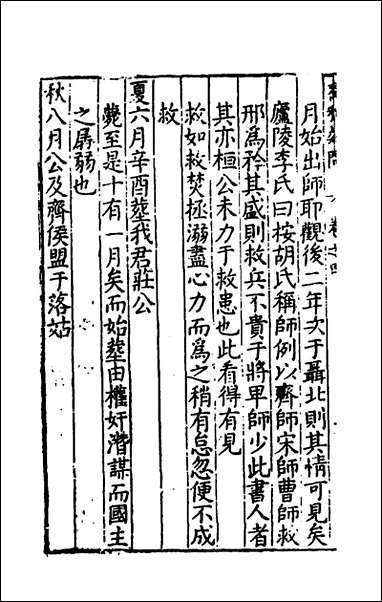 月始出師耶觀後二年次于聶北則其情可見矣
廬陵李氏曰按胡氏稱師例以齊師宋師曹師救
邢爲矜其盛則救兵不貴于將卑師少此書人者
其亦桓公未力于救患也此看得有見
救如救焚拯溺盡心力而爲之稍有怠忽便不成
救
夏六月辛酉葬我君莊公
薨至是十有一月矣而始葬由權奸潛謀而國主
之孱弱也
秋八月公及齊侯盟于落姑